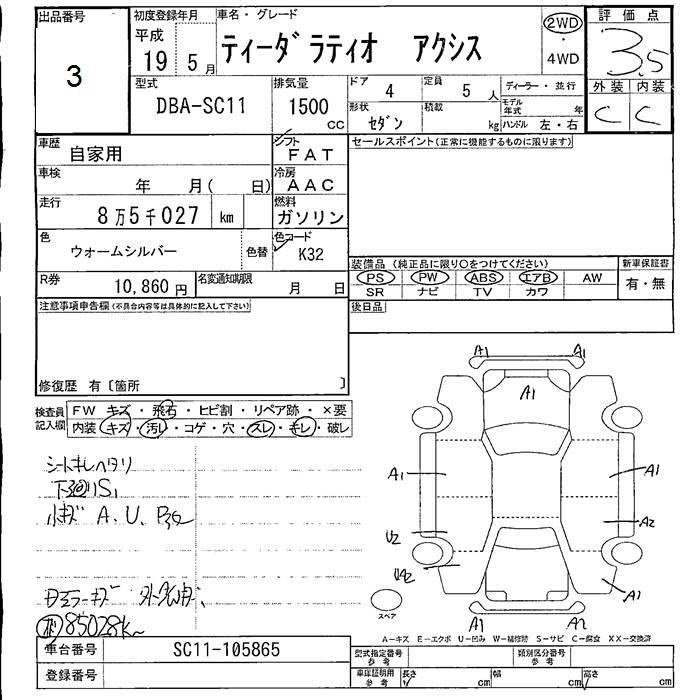 出品番号
3
初度登録年月
平成
19 5 月
車名・グレード
ティーダ ラティオ アクシス
2WD
・
4WD
評価点
3.5
外装 内装
C C
型式
DBA-SC11
排気量
1500
CC
ドア
4
定員
5 人
ディーラー・並行
モデル年式 年
形状
セダン
積載
kg
ハンドル 左・右
車歴
自家用
シフト
FAT
車検
年 月( 日)
冷房
AAC
走行
8万5千027 km
燃料
ガソリン
色
ウォームシルバー
色替
色コード
K32
R券
10,860 円
名変通知期限
月 日
セールスポイント(正常に機能するものに限ります)
装備品 (純正品に限り〇をつけてください)
PS PW ABS エアB AW
SR ナビ TV カワ
新車保証書
有・無
後日品
注意事項申告欄(不具合内容等は具体的に記入して下さい)
修復歴 有〔箇所 〕
検査員記入欄
FW キズ・飛石・ヒビ割・リペア跡・×要
内装 キズ・汚レ・コゲ・穴・スレ・キレ・破レ
シートキレヘタリ
小キズ A、U、
ミラーキズ
85028K
A1 A1
A1
A1 A1
A2
U2
A1
A1 A2
スペア
A-キズ E-エクボ U-凹み W-補修跡 S-サビ C-腐食 XX-交換済
車台番号
SC11-105865
登録番号
型式指定番号
参考
類別区分番号
参考
車庫証明用
参考
長さ cm
幅 cm
高さ cm